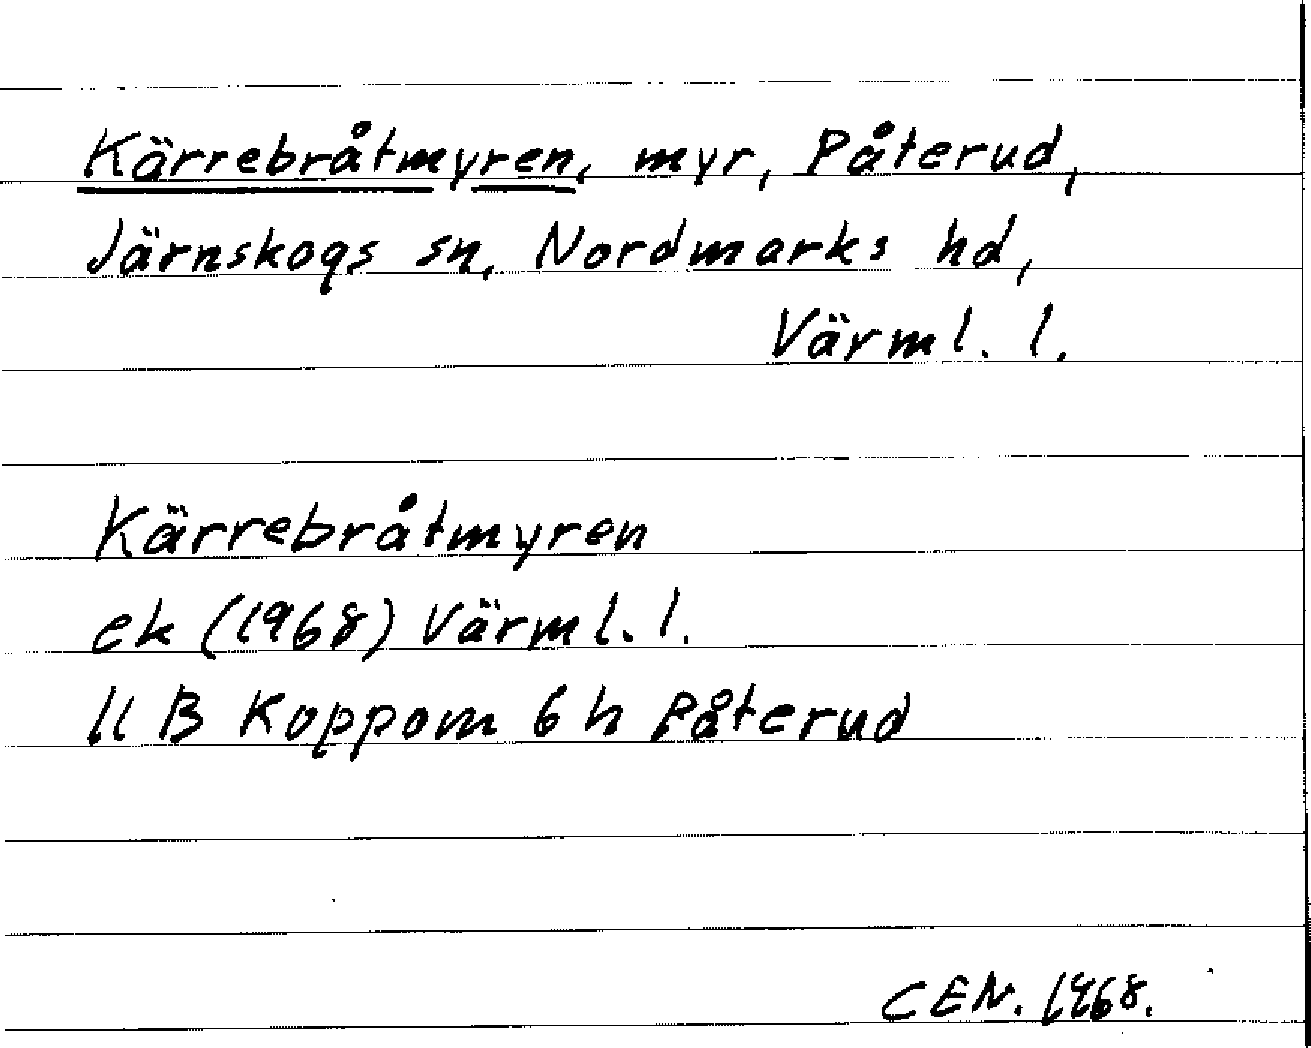 Kärrebråtmyren, myr, Påterud,
Järnskogs sn, Nordmarks hd,
Värml. l.
Kärrebråtmyren
ek (1968) Värml. l.
11 B Koppom 6 h Påterud
CEN. 1968.